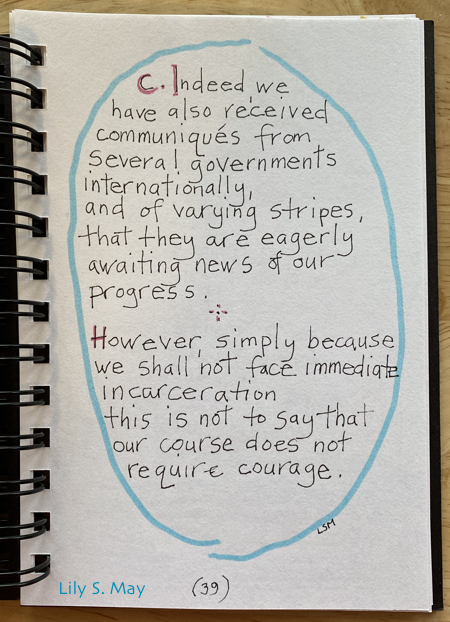 C. Indeed we
have also received
communiqués from
several governments
internationally,
and of varying stripes,
that they are eagerly
awaiting news of our
progress.
However, simply because
we shall not face immediate
incarceration
this is not to say that
our course does not
require courage.
LSM
Lily S. May
(39)